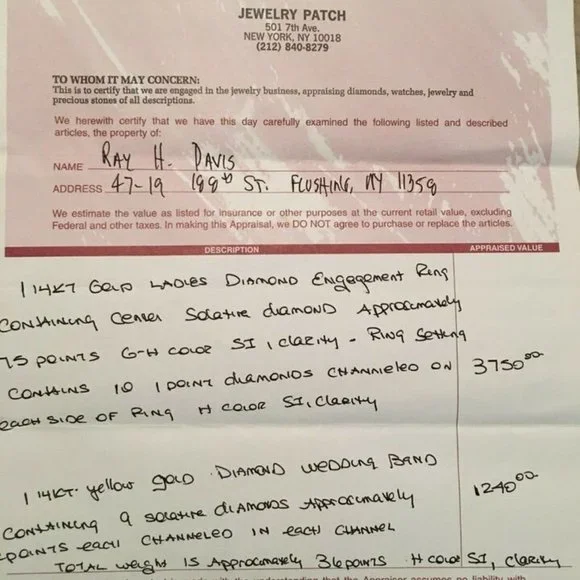 JEWELRY PATCH
501 7th Ave.
NEW YORK, NY 10018
(212) 840-8279
TO WHOM IT MAY CONCERN:
This is to certify that we are engaged in the jewelry business, appraising diamonds, watches, jewelry and
precious stones of all descriptions.
We herewith certify that we have this day carefully examined the following listed and described
articles, the property of:
NAME RAY H. DAVIS
ADDRESS 47-19 188th ST. FLUSHING, NY 11358
We estimate the value as listed for insurance or other purposes at the current retail value, excluding
Federal and other taxes. In making this Appraisal, we DO NOT agree to purchase or replace the articles.
DESCRIPTION APPRAISED VALUE
1 14KT GOLD LADIES DIAMOND ENGAGEMENT RING
CONTAINING CENTER SOLATIRE DIAMOND APPROXIMATELY
75 POINTS G-H COLOR SI, CLARITY - RING SETTING
CONTAINS 10 1 POINT DIAMONDS CHANNELED ON 3750 00
EACH SIDE OF RING H COLOR SI, CLARITY
1 14KT. YELLOW GOLD DIAMOND WEDDING BAND
CONTAINING 9 SOLATIRE DIAMONDS APPROXIMATELY 1240 00
POINTS EACH CHANNELED IN EACH CHANNEL
TOTAL WEIGHT IS APPROXIMATELY 36 POINTS H COLOR SI, CLARITY